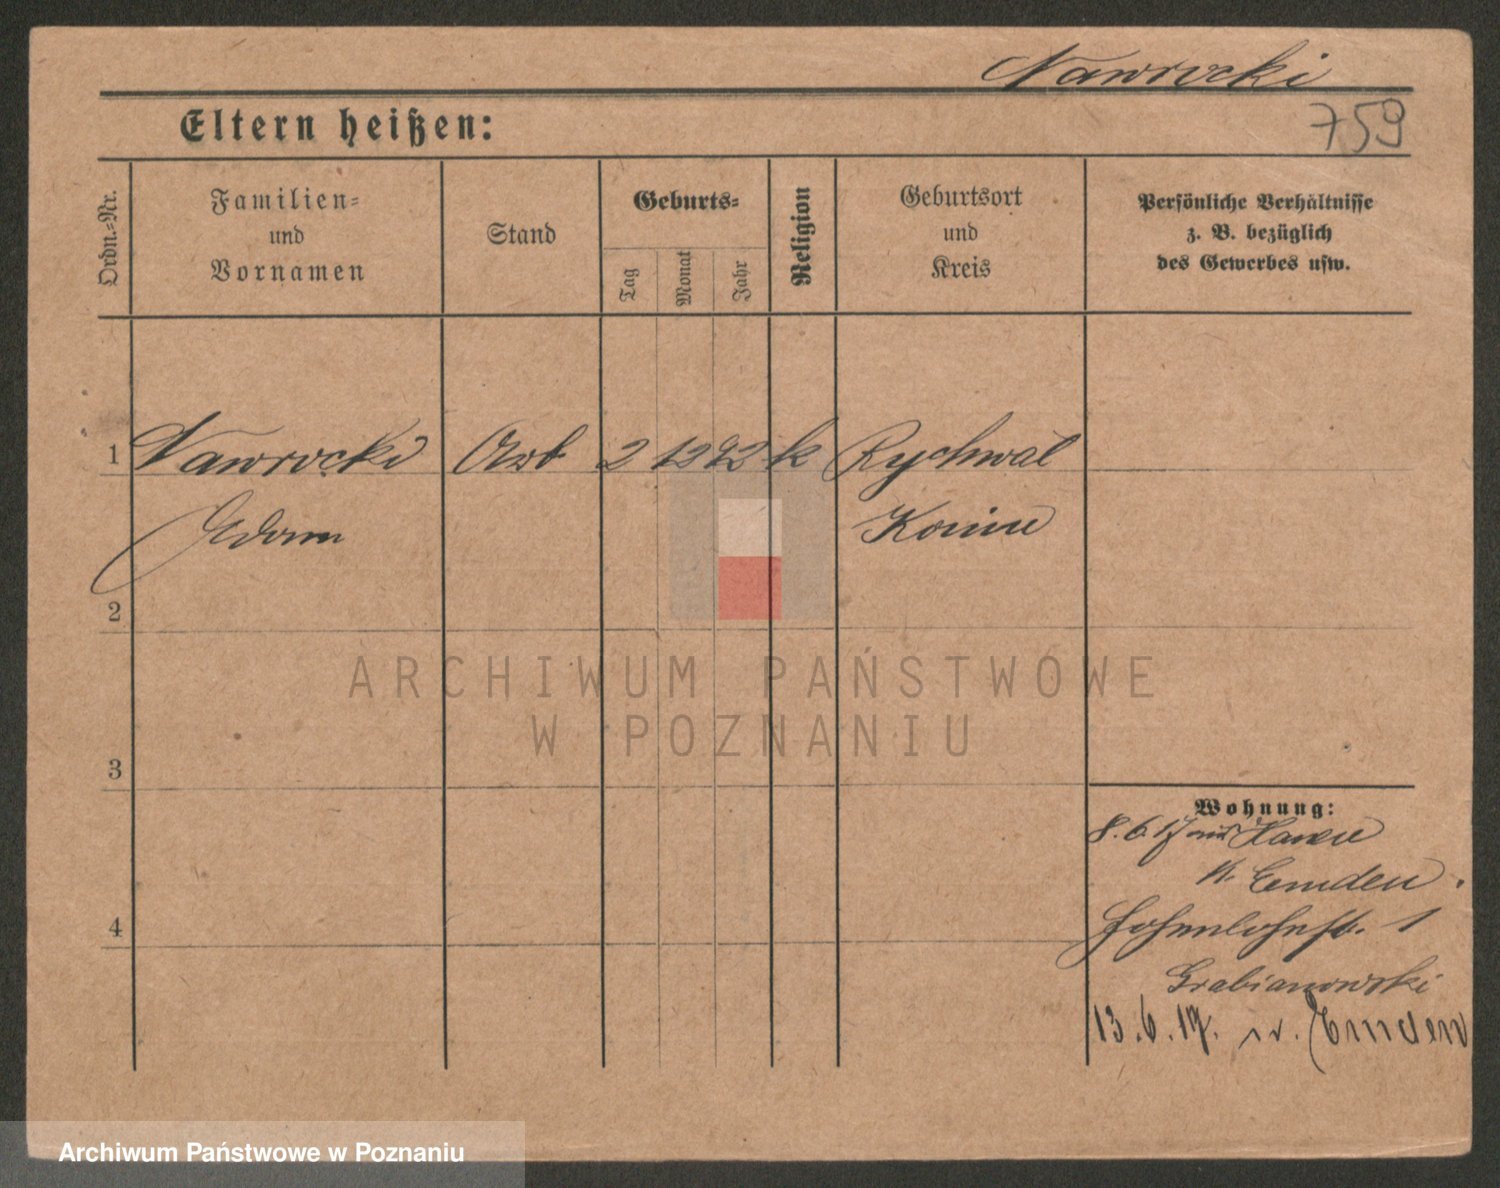 Nawrocki
Eltern heißen:
759
Ordn.-Nr.
Familien-
und
Vornamen
Stand
Geburts-
Tag
Monat
Jahr
Religion
Geburtsort
und
Kreis
Persönliche Verhältnisse
z. B. bezüglich
des Gewerbes usw.
1 Nawrocki Arb 2 12 92 k Rychwal
Konin
2
3
4
ARCHIWUM PAŃSTWOWE
W POZNANIU
Wohnung:
8.6.17 aus
n. Emden.
Hohenlohestr. 1
Grabianowski
13.6.17. n. Emden
Archiwum Państwowe w Poznaniu